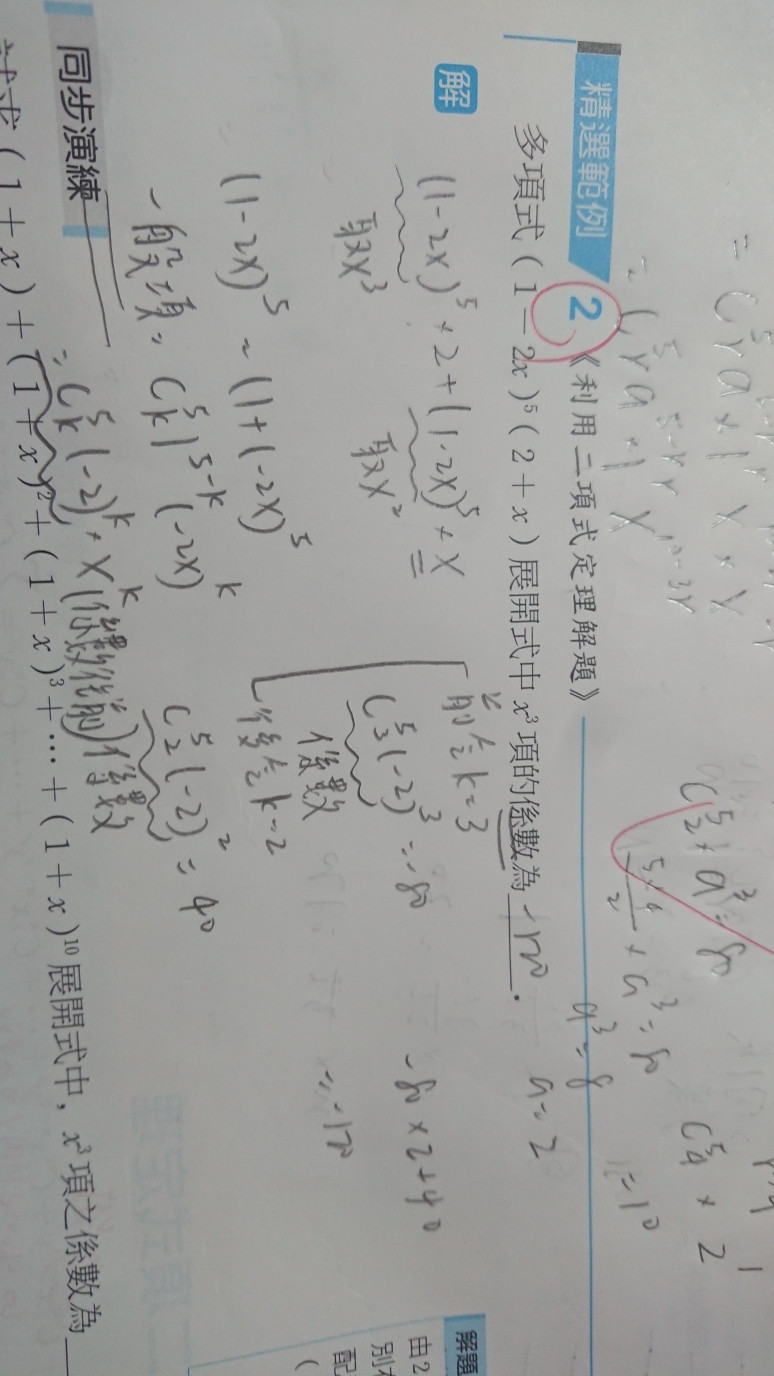 = C⁵ᵣ a
C⁵₂ × a³ = 80
5×4/2 × a³ = 80
a³ = 8
a = 2
C⁵₄ × 2
= 10
精選範例 2 《利用二項式定理解題》
多項式(1-2x)⁵(2+x)展開式中 x³ 項的係數為 -120 .
解
(1-2x)⁵ × 2 + (1-2x)⁵ × x =
取x³ 取x²
(1-2x)⁵ = (1+(-2x)⁵
一般項 = C⁵ₖ 1⁵⁻ᵏ (-2x)ᵏ
= C⁵ₖ (-2)ᵏ × xᵏ
係數
前令k=3
C⁵₃(-2)³ = -80
係數
後令k=2
C⁵₂(-2)² = 40
-80×2+40
= -120
解題
由2
別
配
(
同步演練
試求(1+x)+(1+x)²+(1+x)³+…+(1+x)¹⁰展開式中,x³ 項之係數為